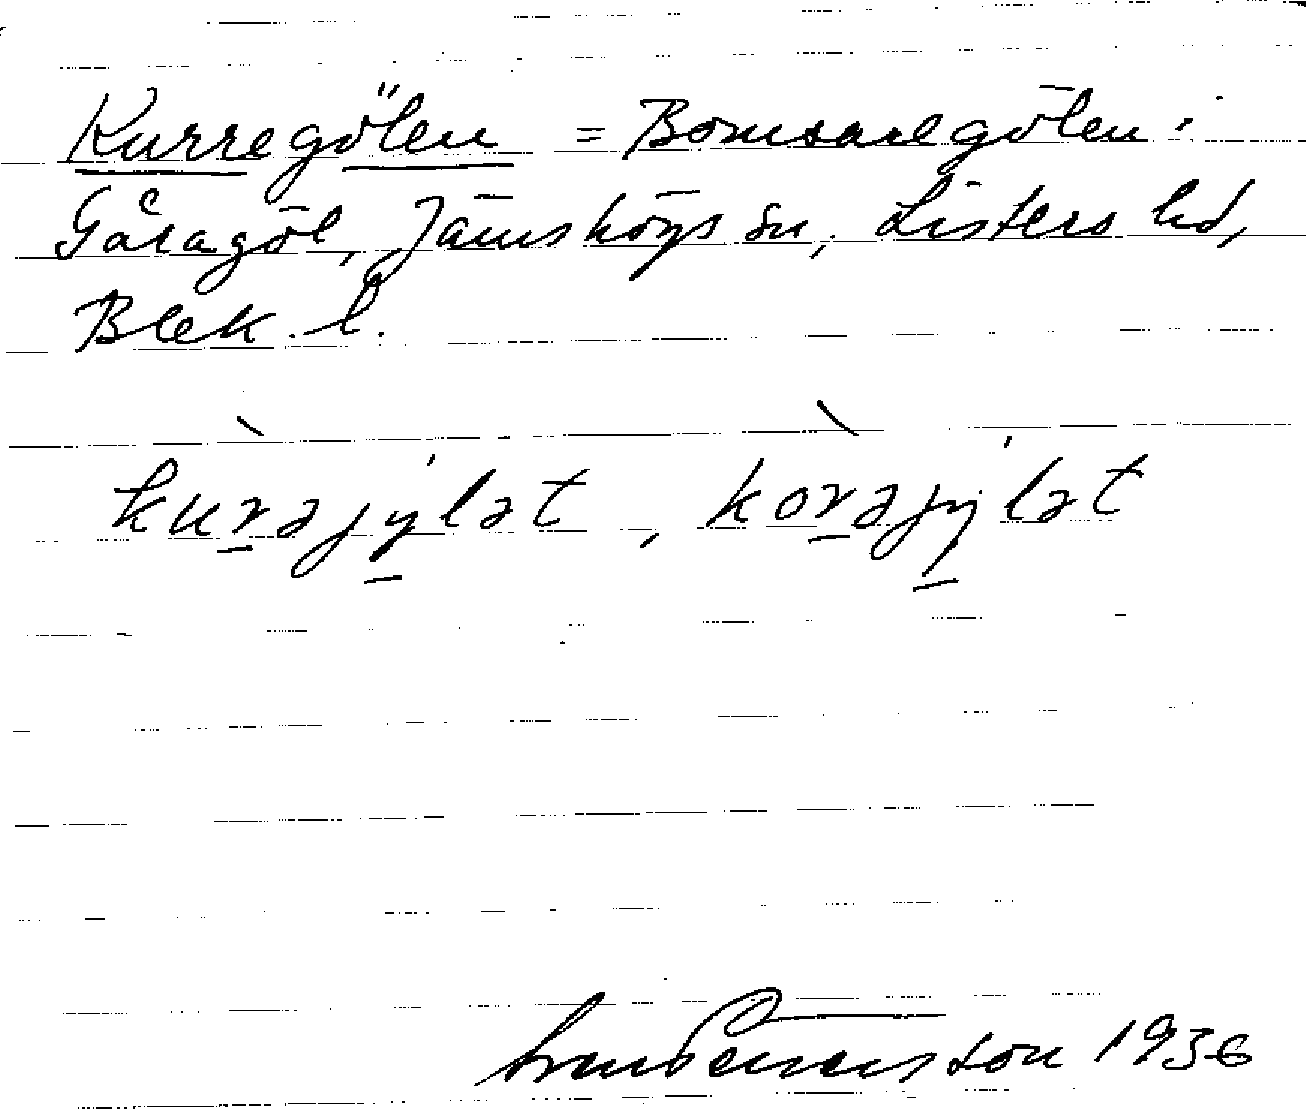 Kurregölen = Bomsaregölen.
Gåragöl, Jämshögs sn, Listers hd,
Blek. l.
kurəjylət, korəjylət
1936